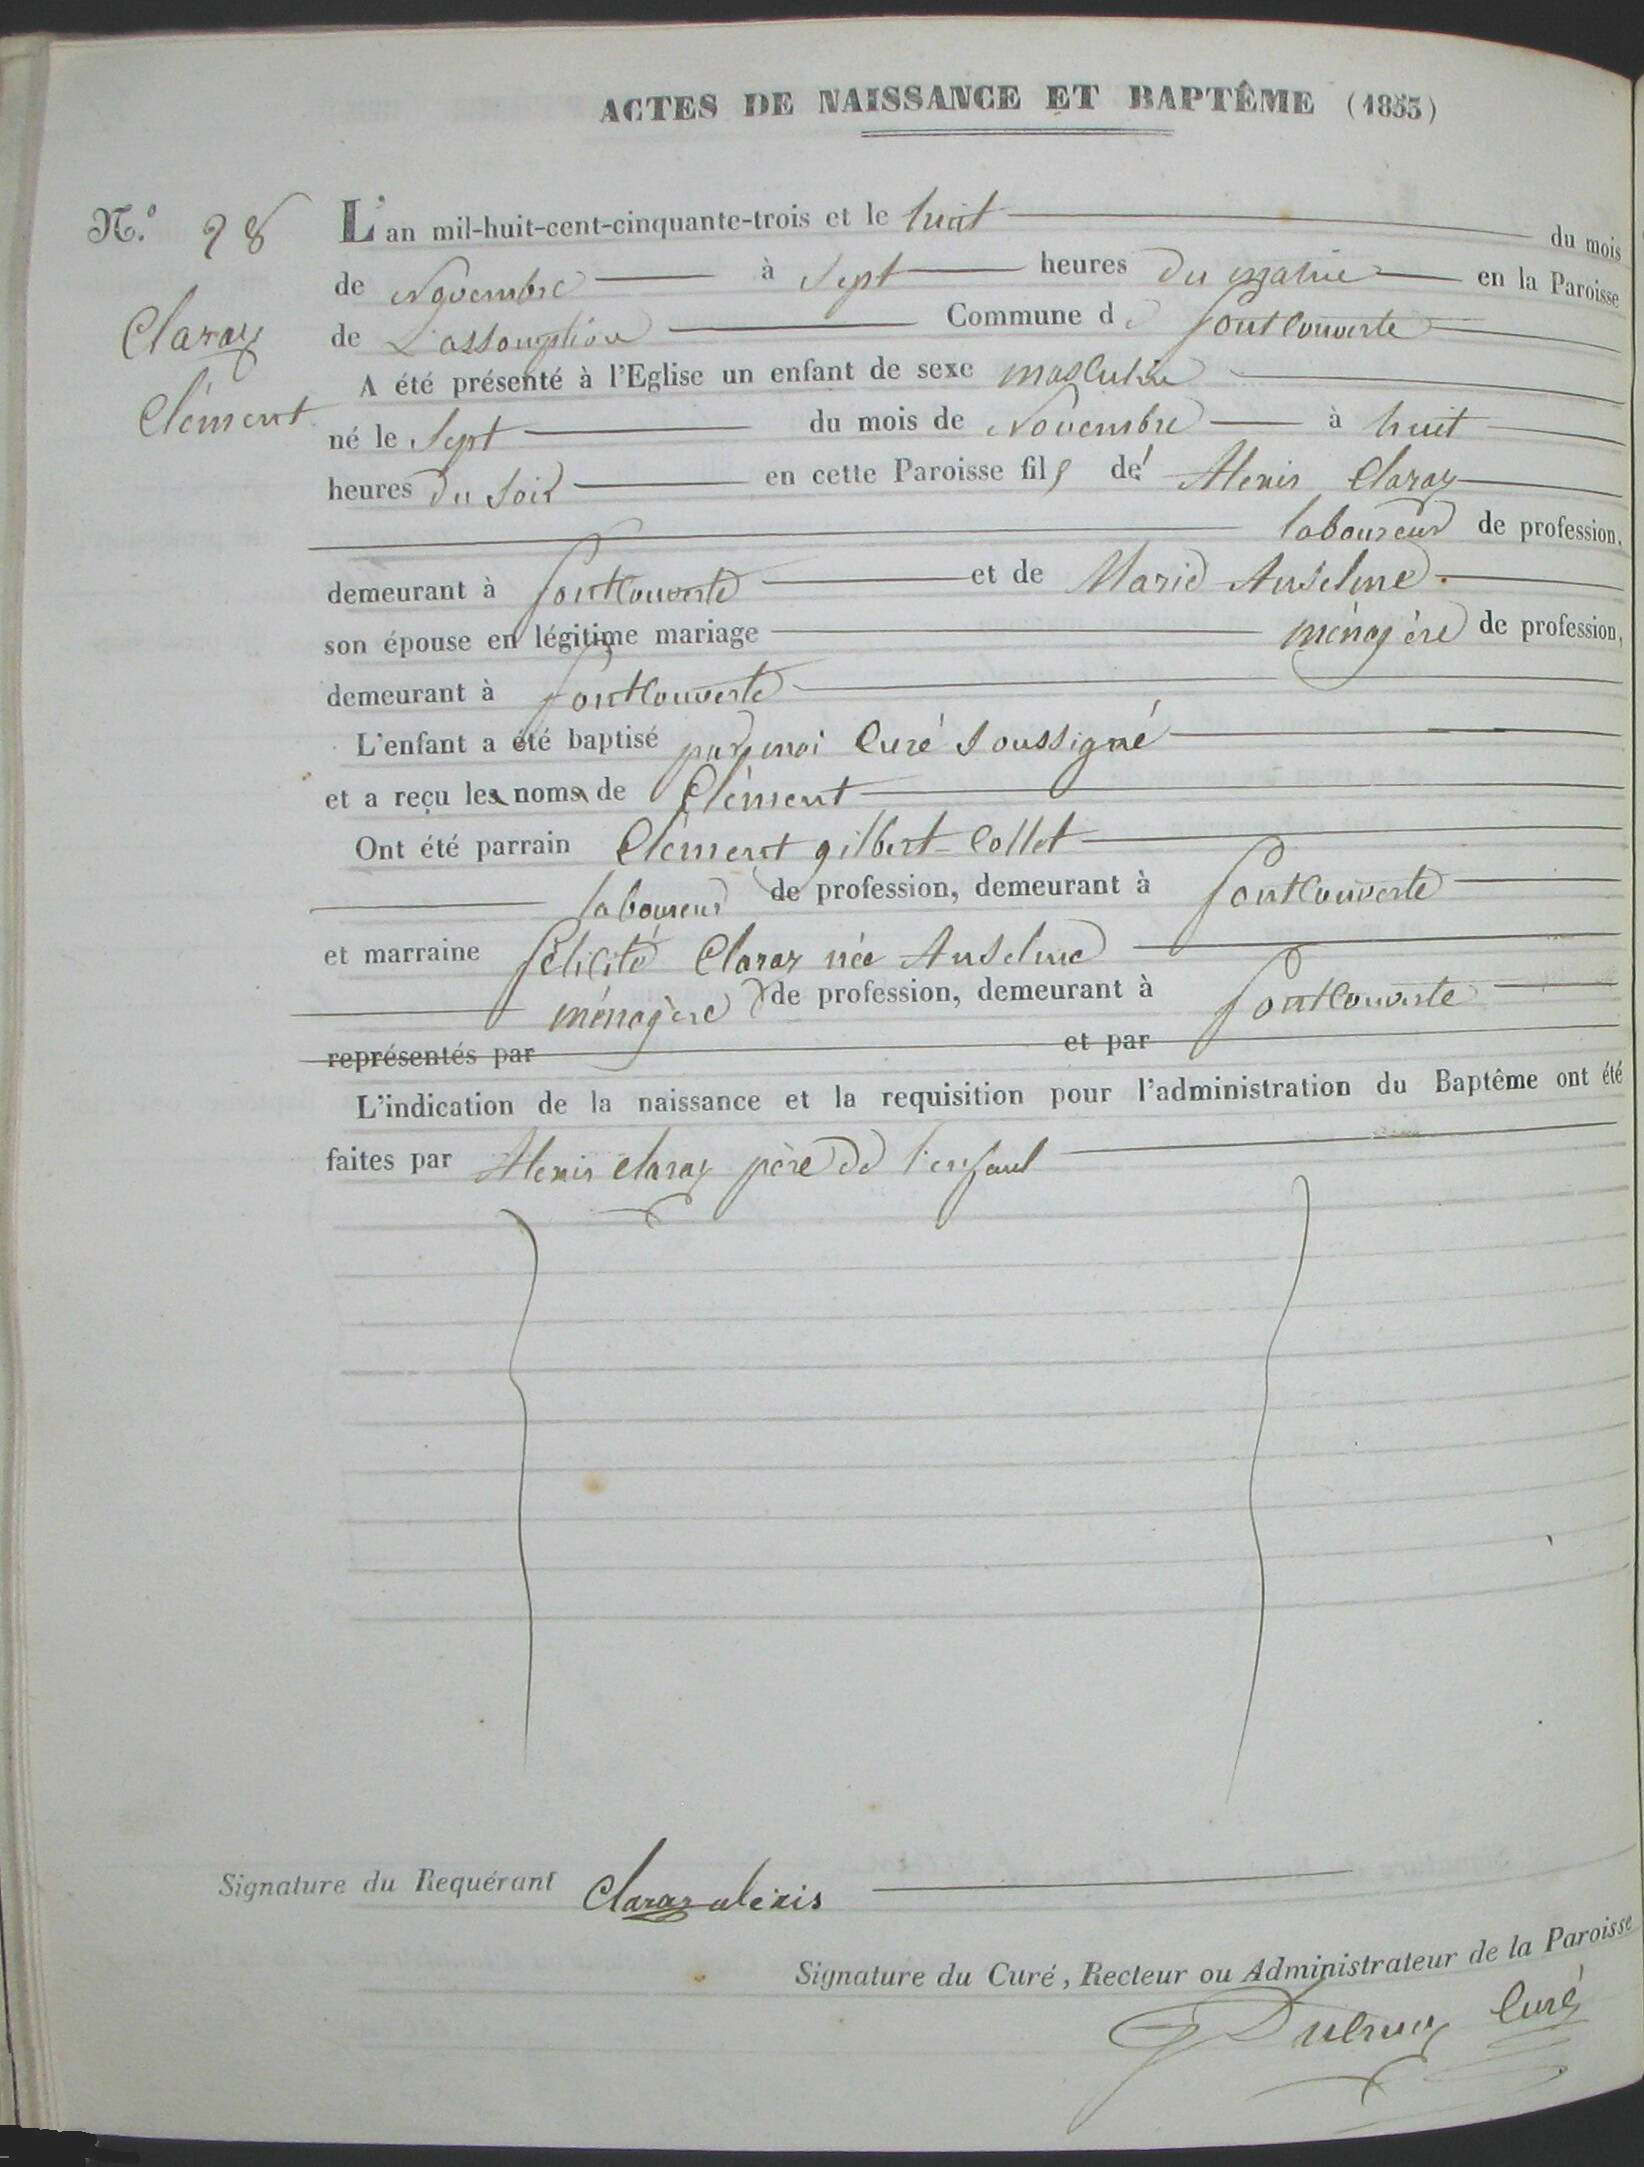 ACTES DE NAISSANCE ET BAPTÊME (1853)
N.º 28
Claraz
Clément
L'an mil-huit-cent-cinquante-trois et le huit du mois
de Novembre à Sept heures du matin en la Paroisse
de L'assomption Commune de fontcouverte
A été présenté à l'Eglise un enfant de sexe masculin
né le Sept du mois de Novembre à huit
heures du soir en cette Paroisse fils de Alexis Claraz
laboureur de profession,
demeurant à fontcouverte et de Marie Anselme
son épouse en légitime mariage ménagère de profession,
demeurant à fontcouverte
L'enfant a été baptisé par moi Curé soussigné
et a reçu les noms de Clément
Ont été parrain Clément gilbert-Collet
laboureur de profession, demeurant à fontcouverte
et marraine félicité Claraz née Anselme
ménagère de profession, demeurant à fontcouverte
représentés par et par
L'indication de la naissance et la requisition pour l'administration du Baptême ont été
faites par Alexis Claraz père de l'enfant
Signature du Requérant Claraz alexis
Signature du Curé, Recteur ou Administrateur de la Paroisse
Curé